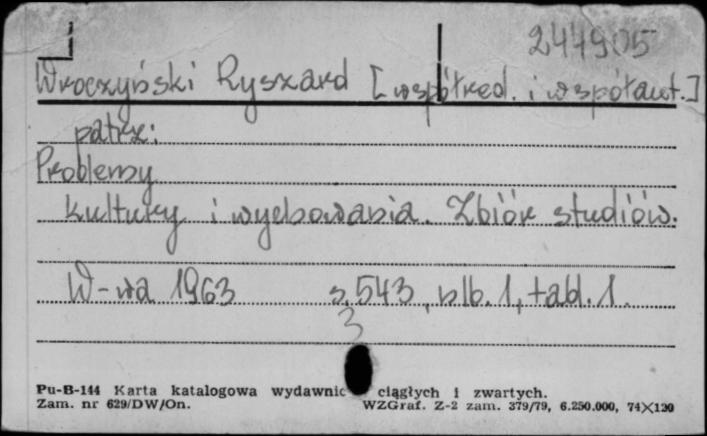 244905
Wroczyński Ryszard [współred. i współaut.]
patrz:
Problemy
kultury i wychowania. Zbiór studiów.
W-wa 1963 s. 543, nlb. 1, tabl. 1.
3
Pu-B-144 Karta katalogowa wydawnic ciągłych i zwartych.
Zam. nr 629/DW/On. WZGraf. Z-2 zam. 379/79, 6.250.000, 74×120